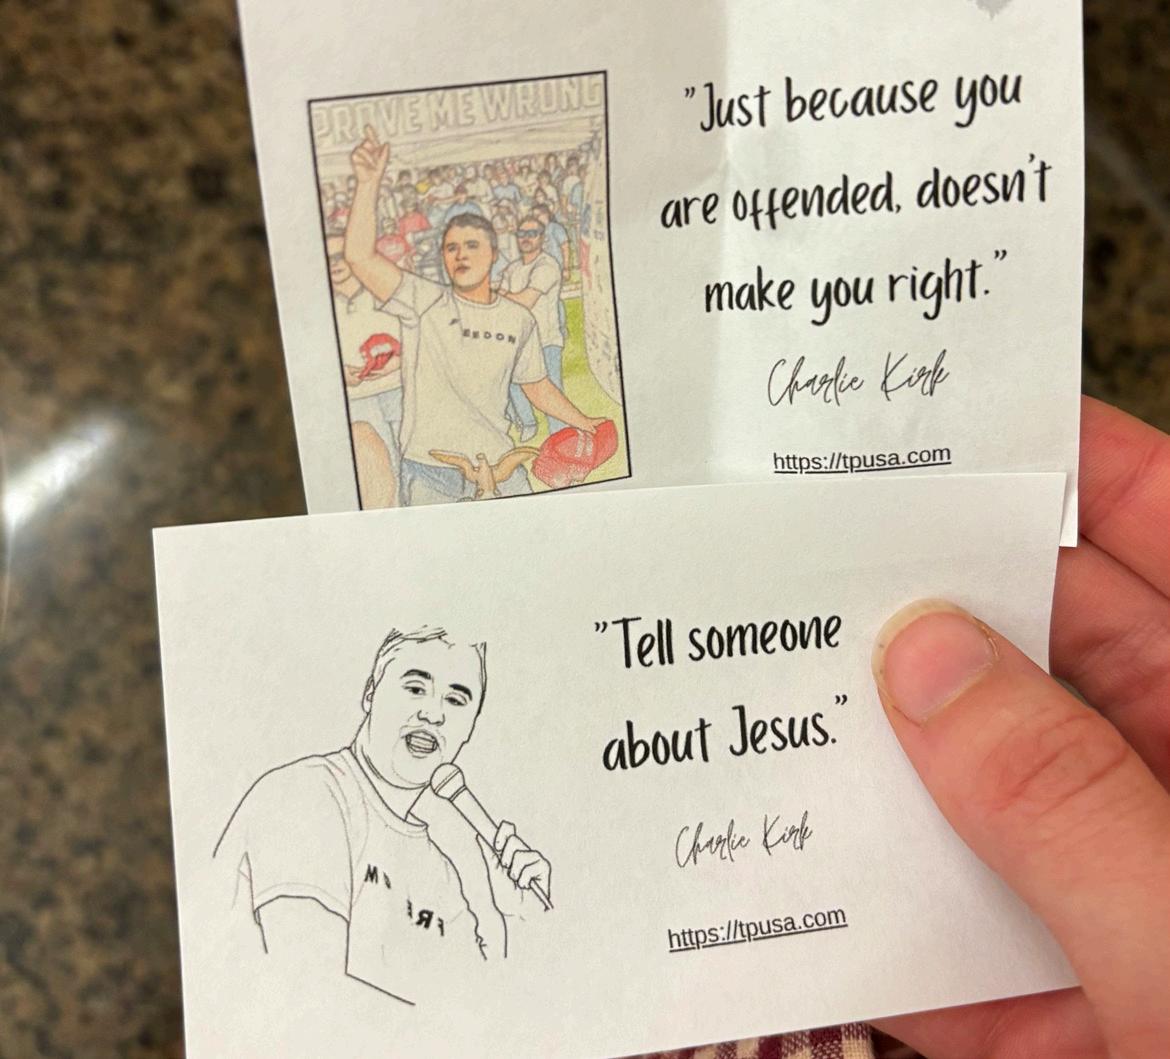 PROVE ME WRONG
"Just because you
are offended, doesn't
make you right."
Charlie Kirk
https://tpusa.com
"Tell someone
about Jesus."
Charlie Kirk
https://tpusa.com